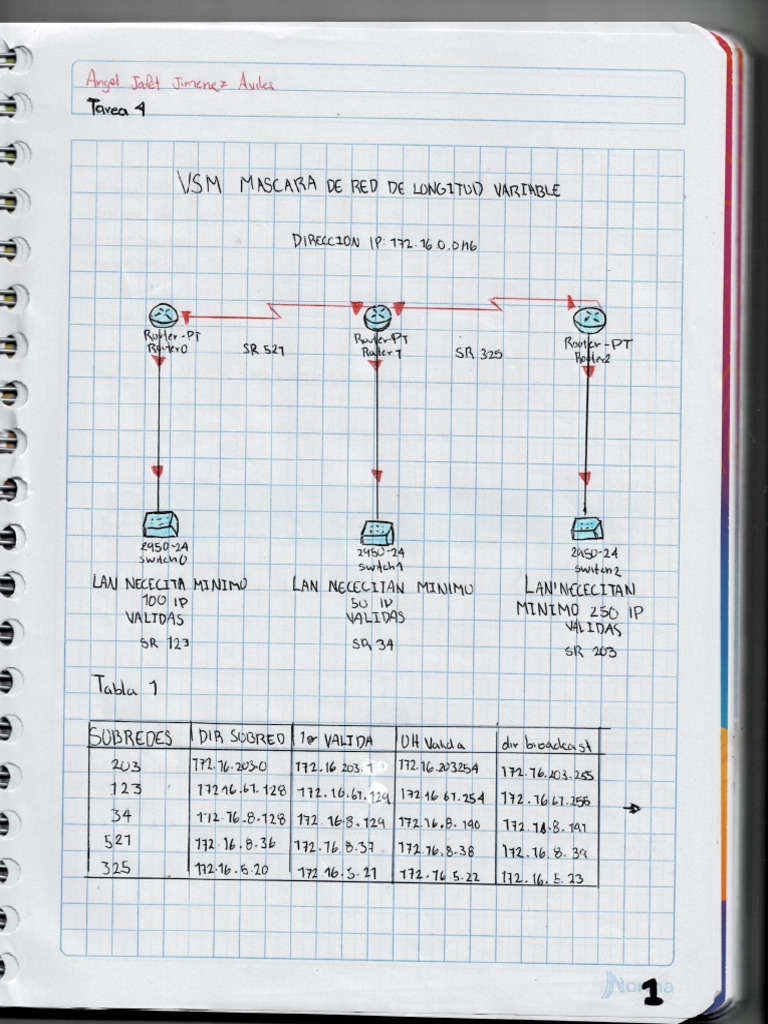 Angel Jafet Jimenez Aviles
Tarea 4
VSM MASCARA DE RED DE LONGITUD VARIABLE
DIRECCION IP: 172.16.0.0/16
Router-PT
Router0
SR 521
Router-PT
Router1
SR 325
Router-PT
Router2
2950-24
switch0
2950-24
switch1
2950-24
switch2
LAN NECECITA MINIMO
100 IP
VALIDAS
SR 123
LAN NECECITAN MINIMO
50 IP
VALIDAS
SR 34
LAN NECECITAN
MINIMO 250 IP
VALIDAS
SR 203
Tabla 1
SUBREDES DIR SUBRED 1er VALIDA Ult Valida dir broadcast
203 172.16.203.0 172.16.203.1 172.16.203254 172.16.203.255
123 172 16.61.128 172.16.61.129 172 16 61.254 172.16.61.255
34 172.16.8.128 172.16.8.129 172.16.8.190 172.16.8.191
521 172.16.8.36 172.16.8.37 172.16.8.38 172.16.8.39
325 172.16.5.20 172.16.5.21 172.16.5.22 172.16.5.23
Norma
1